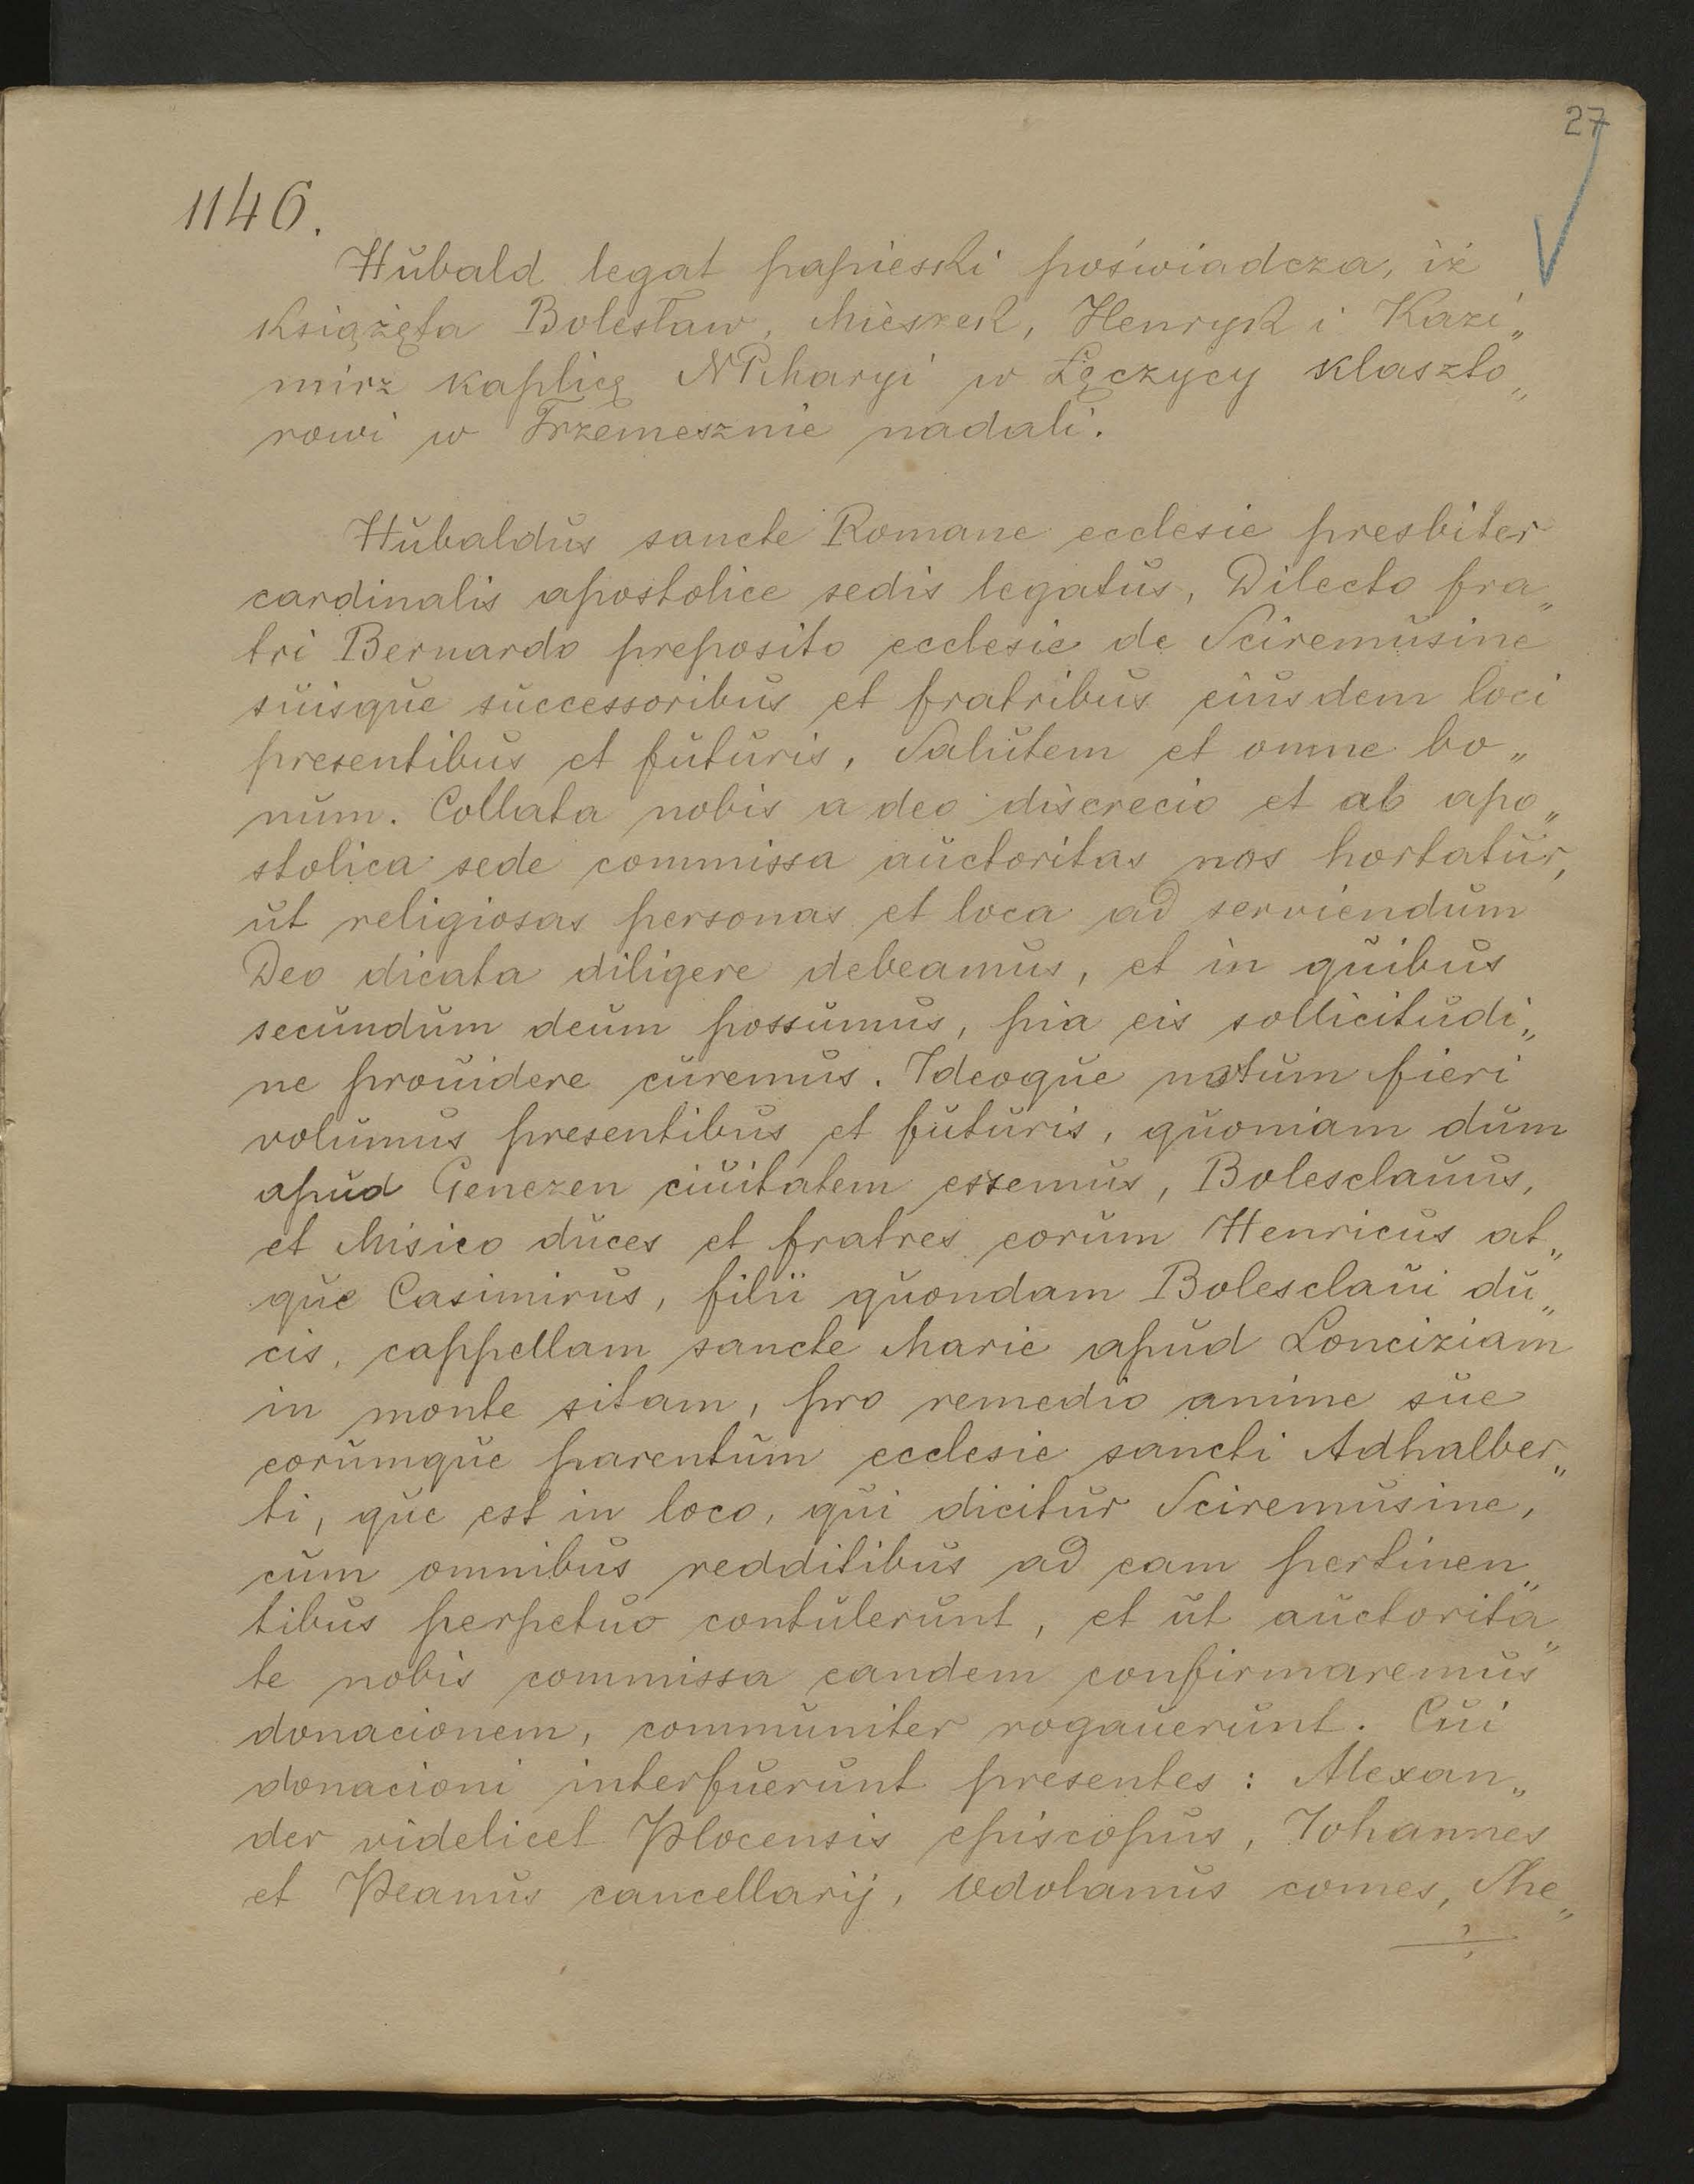 27
1146.
Hubald legat papieski poświadcza, iż
książęta Bolesław, Mieszek, Henryk i Kazi„
mirz kaplicą NPMaryi w Łęczycy klaszto„
rowi w Trzemesznie nadali.
Hubaldus sancte Romane ecclesie presbiter
cardinalis apostolice sedis legatus, Dilecto fra„
tri Bernardo preposito ecclesie de Sciremusine
suisque successoribus et fratribus eiusdem loci
presentibus et futuris, Salutem et omne bo„
num. Collata nobis a deo discrecio et ab apo„
stolica sede commissa auctoritas nos hortatur,
ut religiosas personas et loca ad serviendum
Deo dicata diligere debeamus, et in quibus
secundum deum possumus, pia eis sollicitudi„
ne prouidere curemus. Ideoque notum fieri
volumus presentibus et futuris, quoniam dum
apud Genezen ciuitatem essemus, Bolesclauus,
et Misico duces et fratres eorum Henricus at„
que Casimirus, filii quondam Bolesclaui du„
cis, cappellam sancte Marie apud Lonciziam
in monte sitam, pro remedio anime sue
eorumque parentum ecclesie sancti Adhalber„
ti, que est in loco, qui dicitur Sciremusine,
cum omnibus redditibus ad eam pertinen„
tibus perpetuo contulerunt, et ut auctorita„
te nobis commissa eandem confirmaremus
donacionem, communiter rogauerunt. Cui
donacioni interfuerunt presentes: Alexan„
der videlicet Plocensis episcopus, Iohannes
et Peanus cancellarij, Vdolanus comes, She„